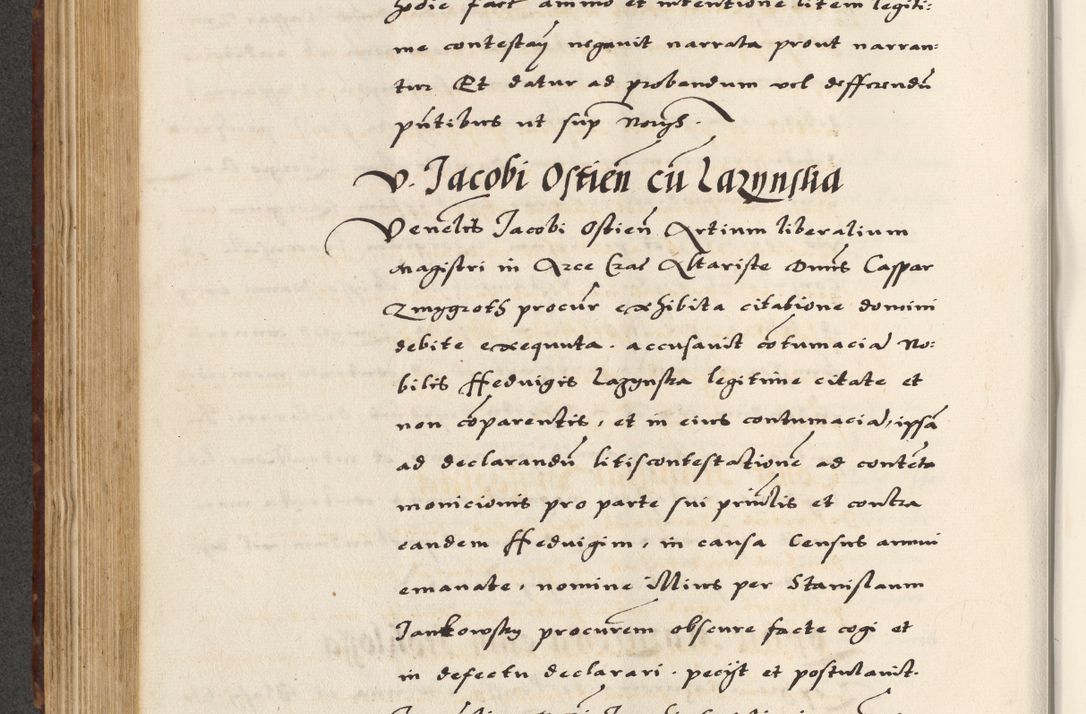 hodie fact animo et intentione litem legiti:
me contestan̄ negauit narrata prout narran:
tur Et datur ad probandum vel defferendū
pn̄tibus ut sup
v. Jacobi Ostien̄ cū Lazynska
Venelis Jacobi Ostien̄ Artium liberalium
magistri in Arce Crac Altariste Dnus Caspar
Zmygroth procur exhibita citatione domini
debite exequuta. accusauit cōtumaciā No:
bilis Heduigis Lazynska legitime citate et
non cōparentis, et in eius contumaciā, ipsā
ad declarandū litiscontestationē ad contēta
monicionis pro parte sui prin̄lis et contra
eandem Heduigim, in causa Census annui
emanate, nomine illius per Stanislaum
Jankowsky procurem obscure facte cogi et
in defectu declarari. pecijt et postulauit.